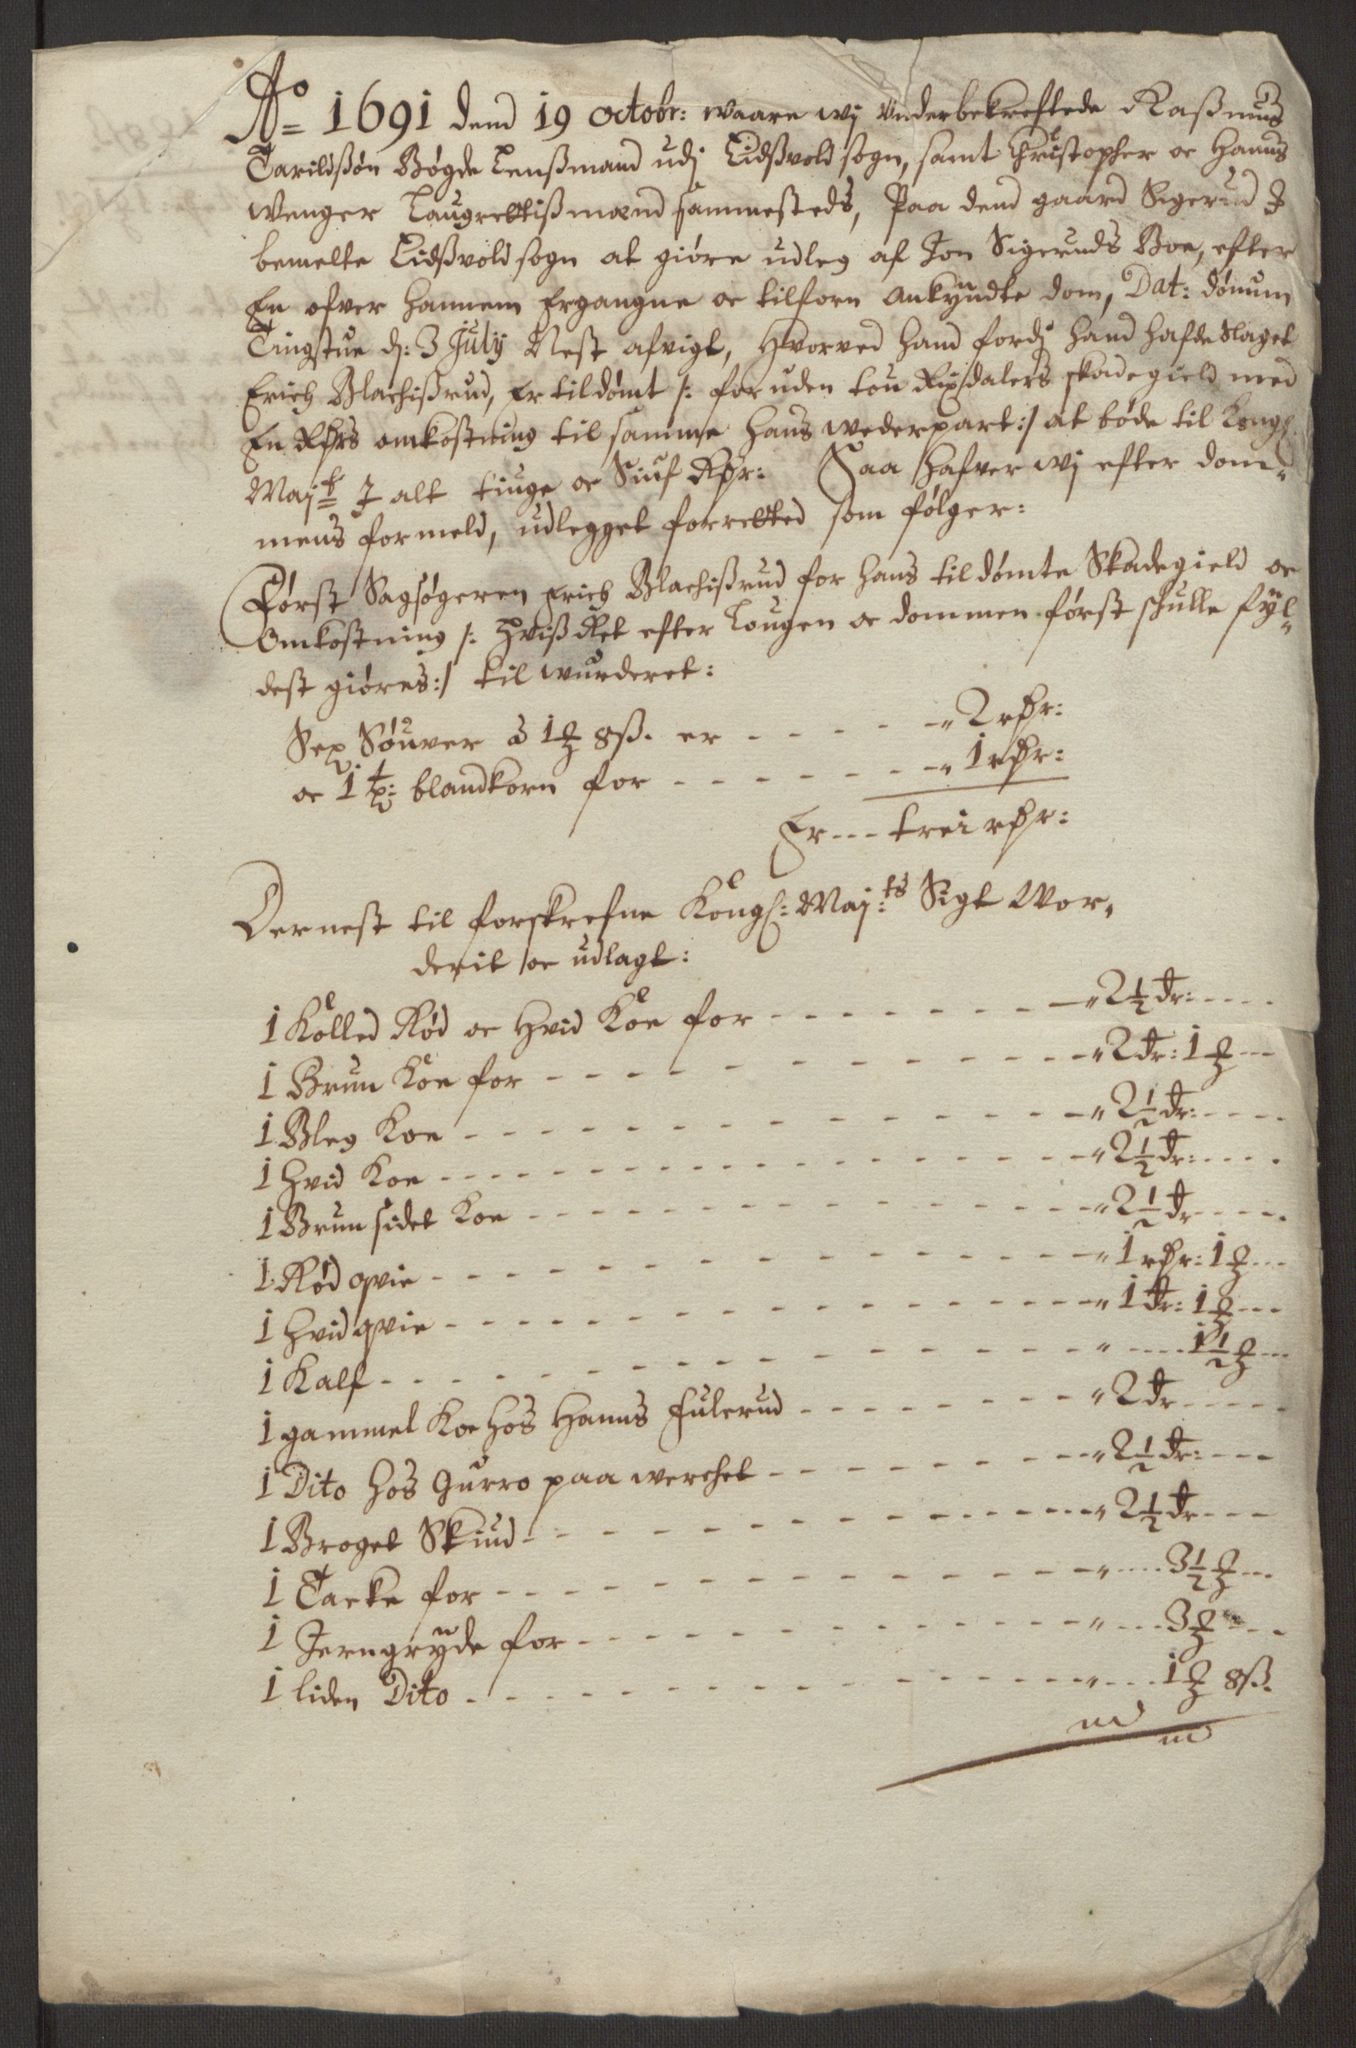 Ao 1691 dend 19 octobr: waare wj underbekreftede Raßmus
Tarildßøn Bøgde Lensmand udj Eidßvold sogn, samt Christopher oc Hanns
Wenger Laugrettißmænd sammesteds, Paa dend gaard Sigerud J
bemelte Eidßvold sogn at giøre udleg af Jon Sigeruds Boe, efter
En ofver hannem Ergangne oc tilforn ankyndte dom, Dat: dønum
Tingstue d: 3 July Nest afvigt, Hvorved hand fordj hand hafde slaget
Erich Blachißrud, Er tildømt /: foruden tou Rixdalers skadegield med
En Rdrs omkostning til samme hans wederpart :/ at bøde til Kongl:
Mayt J alt tiuge oc Siuf Rdr: Saa hafver wj efter dom-
mens formeld, udlegget forretted som følger:
Først Sagsøgeren Erich Blachißrud for hans tildømte Skadegield oc
omkostning /: Hviß Ret efter Lougen oc dommen først skulle fyl-
dest giøres :/ til wurderet:
Sex Søuver à 1 ₰ 8ß. er - - - - - 2 rdr:
oc 1 tx: blandkorn for - - - - - - - 1 rdr:
Er --- trei rdr:
Dernest til forskrefne Kongl: Maj:ts Sigt Wor-
derit oc udlagt:
1 Kolled Rød oc Hvid Koe for - - - - - - - 2½ dr: - - - -
1 Brun Koe for - - - - - - - - - - 2 dr: 1 ₰ - -
1 Bleg Koe - - - - - - - - - - - 2½ dr: - - - -
1 Hvid Koe - - - - - - - - - - - 2½ dr: - - - -
1 Brun sidet Koe - - - - - - - - - - 2½ dr - - - -
1 Rød qvie - - - - - - - - - - - 1 rdr: 1 ₰ - -
1 Hvid qvie - - - - - - - - - - - 1 dr: 1 ₰ - -
1 Kalf - - - - - - - - - - - " - - - 1½ ₰ - -
1 gammel Koe hos Hanns Julerud - - - - - - 2 dr - - - -
1 Dito hos Gurro paa werchet - - - - - - - 2½ dr: - - -
1 Broget Skiud - - - - - - - - - - 2½ dr - - -
1 Tacke for - - - - - - - - - - " - - - 3½ ₰ - -
1 Jerngryde for - - - - - - - - - " - - - 3 ₰ - - -
1 liden Dito - - - - - - - - - - " - - - 1 ₰ 8ß.